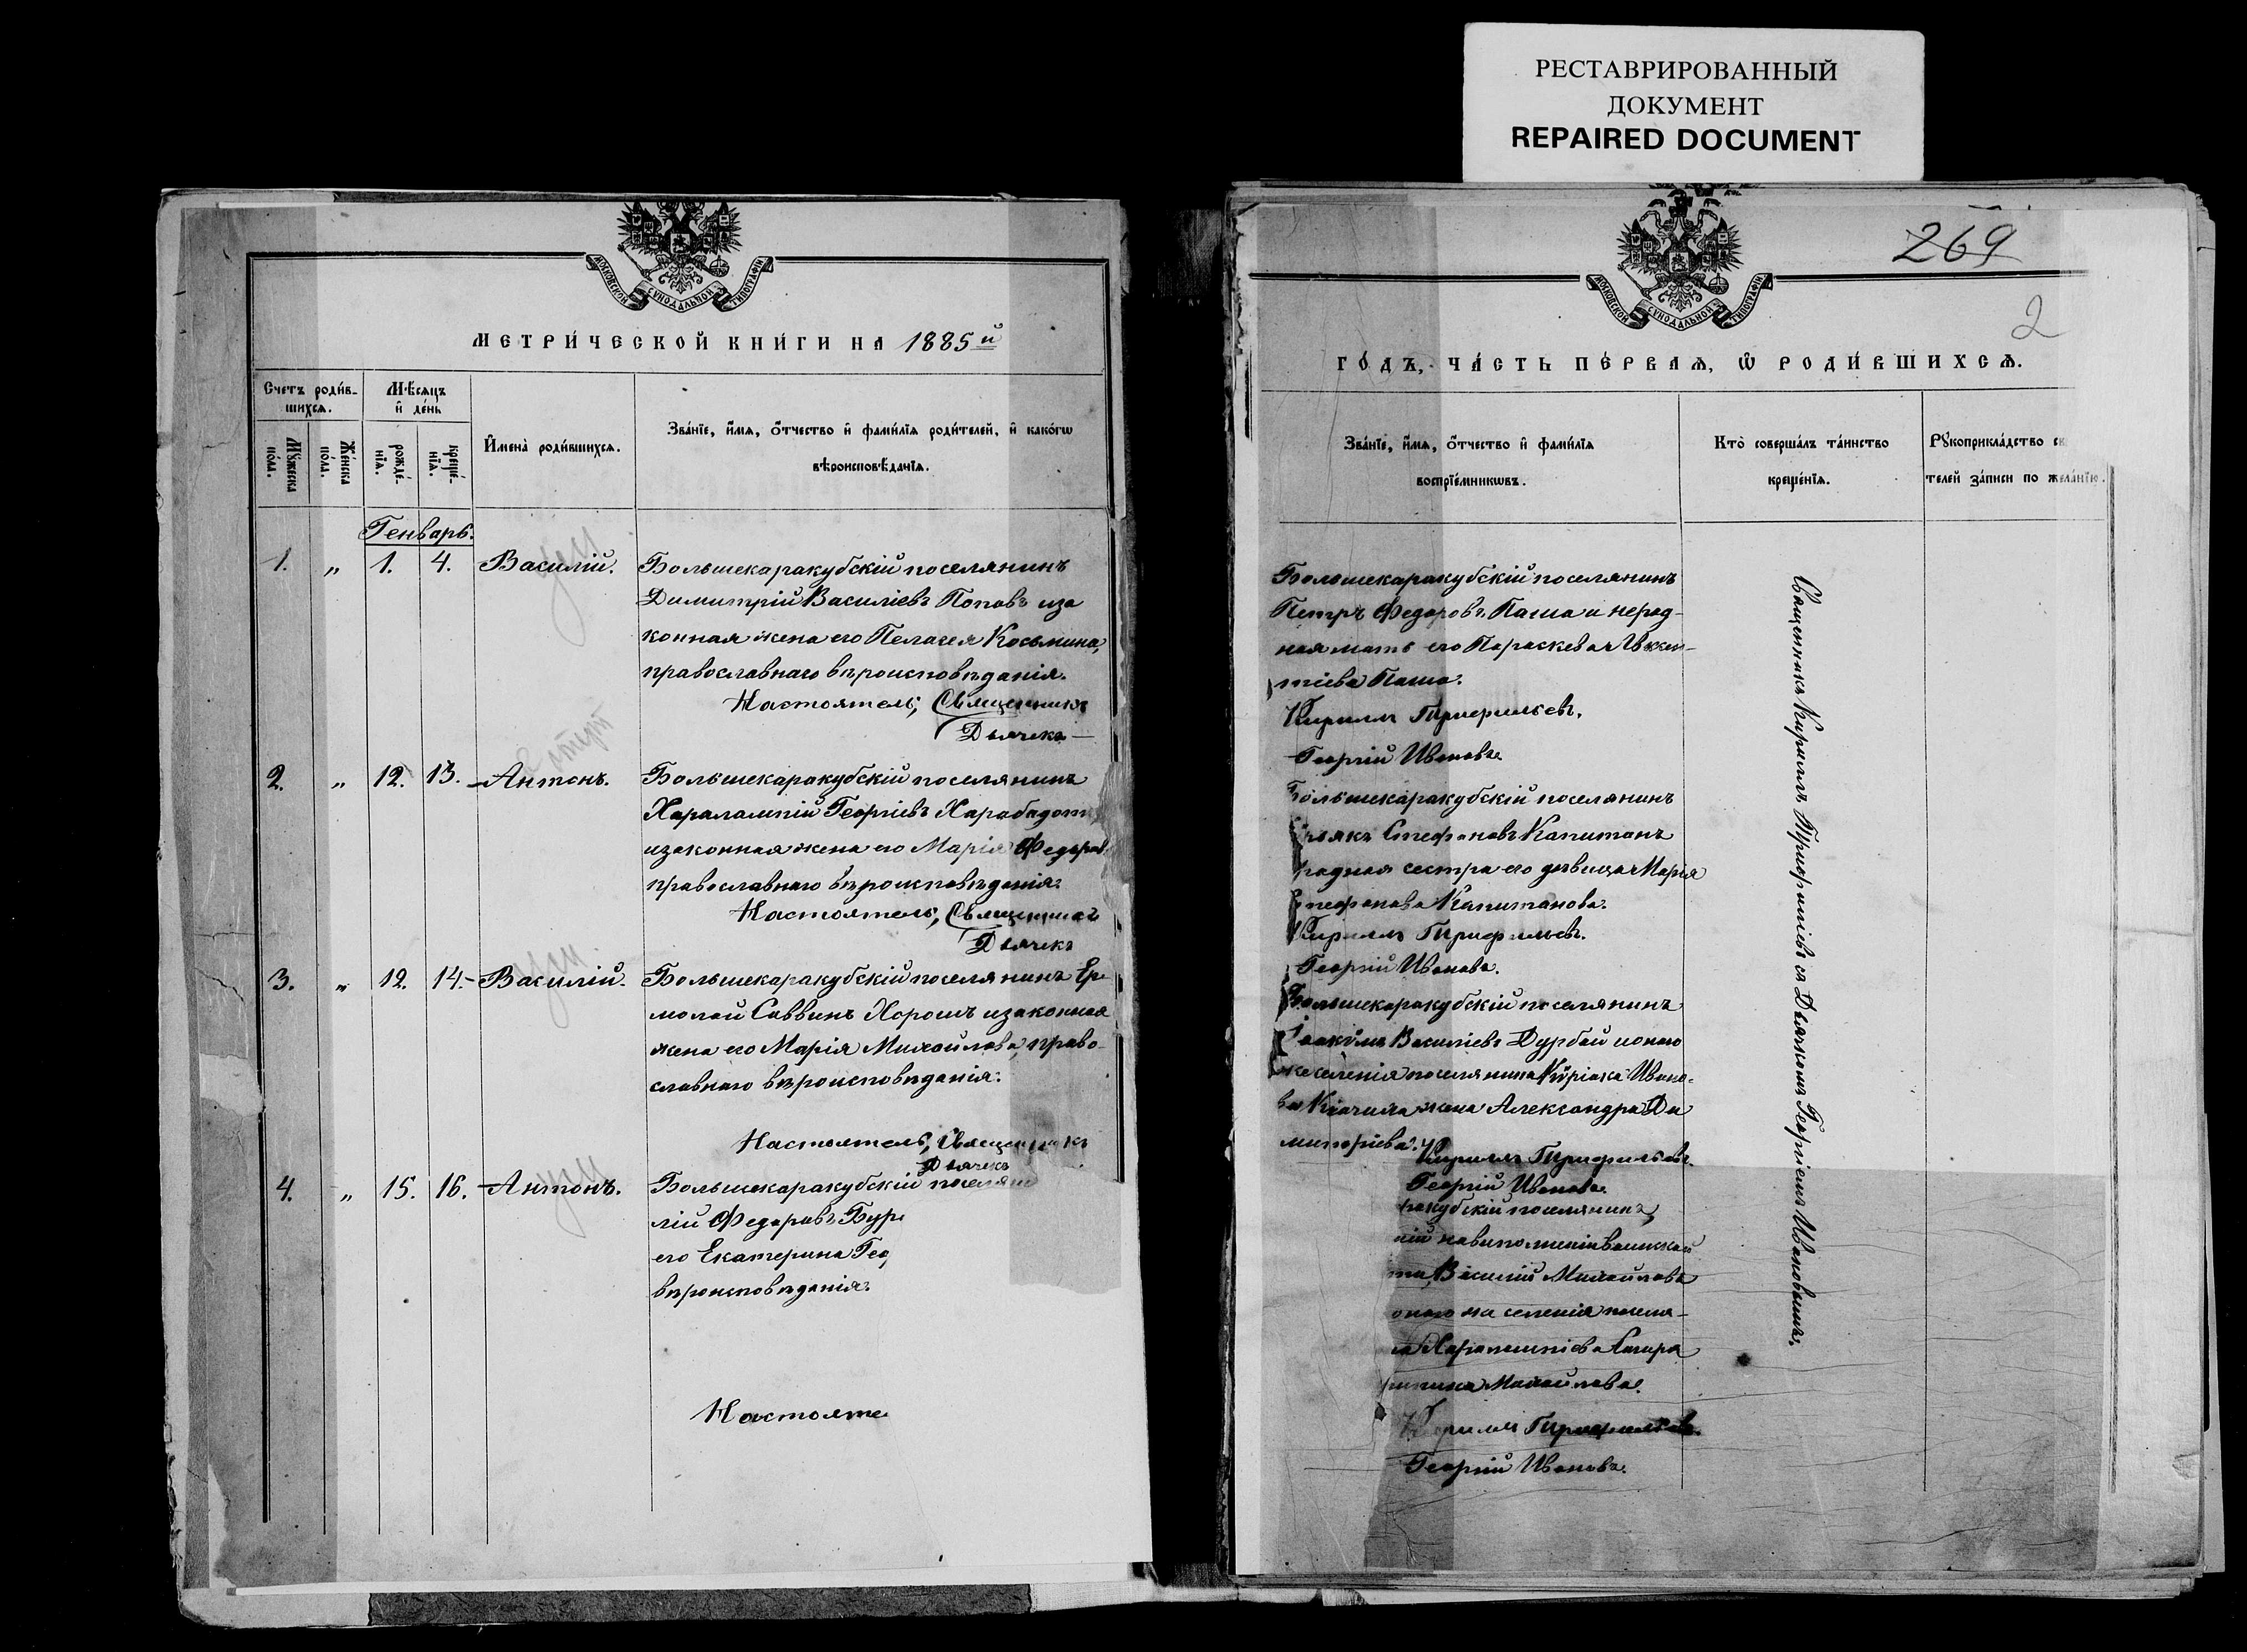 РЕСТАВРИРОВАННЫЙ
ДОКУМЕНТ
REPAIRED DOCUMENT
МОСКОВСКОЙ СѴНОДАЛЬНОЙ ТИПОГРАФІИ
МЕТРИ́ЧЕСКОЙ КНИ́ГИ НА 1885й
Счетъ роди́в-
шихсѧ.
Мѣ́сѧцъ
и҆ де́нь
Мꙋжеска
по́ла.
Же́нска
по́ла.
рожде́-
нїѧ.
креще́-
нїѧ.
И҆мена̀ роди́вшихсѧ.
Зва́нїе, и҆́мѧ, ѻ҆́тчество и҆ фами́лїѧ роди́телей, и҆ како́гѡ
вѣроисповѣ́данїѧ.
Генварь.
1. „ 1. 4. Василій.
Большекаракубскій поселянинъ
Димитрій Василіевъ Поповъ иза
конная жена его Пелагея Косьмина,
православнаго вѣроисповѣданія.
Настоятель, Священникъ
Дьячекъ
2. „ 12. 13. Антонъ.
Большекаракубскій поселянинъ
Харалампій Георгіевъ
изаконная жена его Марія Федоров
православнаго вѣроисповѣданія.
Настоятель, Священникъ
Дьячекъ
3. „ 12. 14. Василій.
Большекаракубскій поселянинъ Ер-
молай Саввинъ Хорошъ изаконная
жена его Марія Михайлова, право-
славнаго вѣроисповѣданія.
Настоятель, Священникъ
Дьячекъ
4. „ 15. 16. Антонъ.
Большекаракубскій поселян
лій Федоровъ Бур
его Екатерина Гео
вѣроисповѣданія.
Настояте
269
2
МОСКОВСКОЙ СѴНОДАЛЬНОЙ ТИПОГРАФІИ
ГО́ДЪ, ЧА́СТЬ ПЕ́РВАѦ, Ѡ҆ РОДИ́ВШИХСѦ.
Зва́нїе, и҆́мѧ, ѻ҆́тчество и҆ фами́лїѧ
воспрїе́мникѡвъ.
Кто̀ соверша́лъ та́инство
креще́нїѧ.
Рꙋкоприкла́дство св
телей за́писи по жела́нїю.
Большекаракубскій поселянинъ
Петръ Федоровъ Паша и нерод-
ная мать его Параскева
тіева Паша.
Кириллъ Трифильевъ.
Георгій Ивановъ
Большекаракубскій поселянинъ
Стефановъ Капитанъ
родная сестра его дѣвица Марія
Стефанова Капитанова.
Кириллъ Трифильевъ.
Георгій Ивановъ.
Большекаракубскій поселянинъ
Іоакимъ Василіевъ Дурбай ионаго
же селенія поселянина Кѵріака Ивано-
ва жена Александра Ди
митріева.
Кириллъ Трифильевъ.
Георгій Ивановъ.
ракубскій поселянинъ,
Василій Михайловъ
онаго же селенія поселя-
Михайлова.
Кириллъ Трифильевъ.
Георгій Ивановъ.
Священникъ Кириллъ Трифиліевъ съ Дьячкомъ Георгіемъ Ивановымъ.